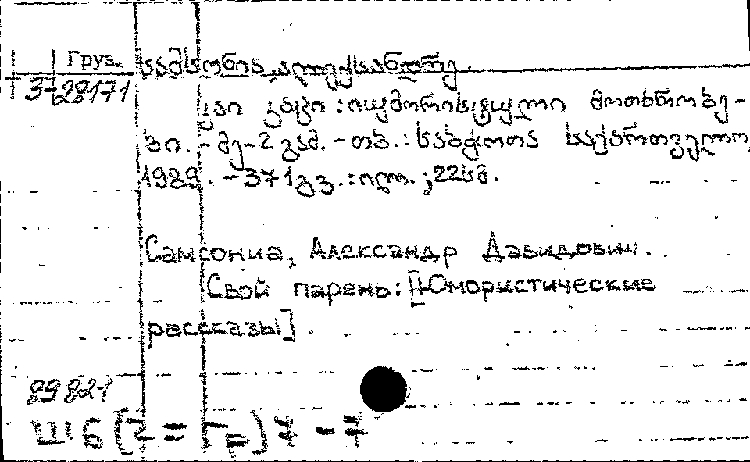 Груз. სამსონია ალექსანდრე.
3-28171
კაი კაცი : იუმორისტული მოთხრობე-
ბი. - მე-2 გამ. - თბ. : საბჭოთა საქართველო,
1989. - 371გვ. : ილ. ; 22სმ.
Самсониа, Александр Давидович.
Свой парень: [Юмористические
рассказы].
89821
Ш6(2=Гр)7-7